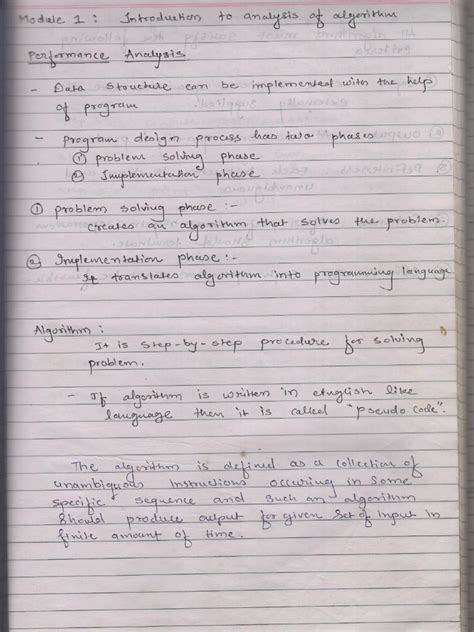 Module 1 : Introduction to analysis of algorithm
Performance Analysis
- Data Structure can be implemented with the help
of program
- program design process has two phases
① problem solving phase
② Implementation phase
① problem solving phase :-
creates an algorithm that solves the problem.
② Implementation phase :-
It translates algorithm into programming language
Algorithm :
It is step-by-step procedure for solving
problem.
- If algorithm is written in english like
language then it is called "pseudo code".
The algorithm is defined as a collection of
unambiguous instructions occuring in some
specific sequence and such an algorithm
should produce output for given set of input in
finite amount of time.